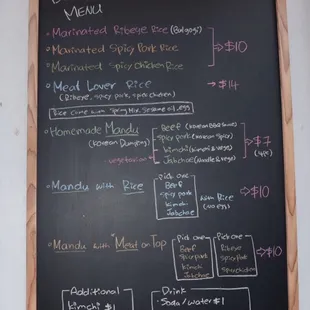 MENU
Marinated Ribeye Rice (Bulgogi)
Marinated Spicy Pork Rice → $10
Marinated Spicy Chicken Rice
Meat Lover Rice → $14
(Ribeye, spicy pork, spicy chicken)
Rice come with Spring Mix, Sesame oil, egg
Homemade Mandu
(Korean Dumpling)
vegetarian
Beef (Korean BBQ sauce)
spicy pork (Korean spicy)
kimchi (kimchi & vege)
Japchae (Noodle & vege)
→ $7
Mandu with Rice
pick one
Beef
spicy pork
kimchi
Japchae
with Rice
(no egg)
→ $10
Mandu with "Meat on Top"
pick one
Beef
Spicy pork
kimchi
Japchae
Pick one
Ribeye
Spicy Pork
Spicy chicken
→ $10
Additional
kimchi $1
Drink
Soda/water $1